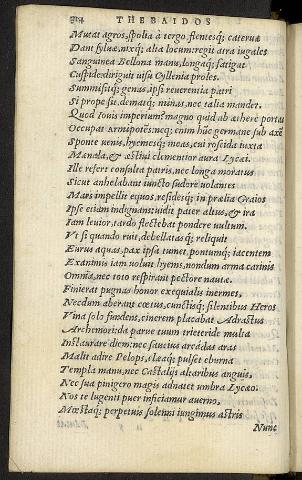 THEBAIDOS
Mutat agros, spolia à tergo, flentesq; cateruæ
Dant syluæ, nixq; alta locum: regit atra iugales
Sanguinea Bellona manu, longaq; fatigat
Cuspide: diriguit uisu Cyllenia proles.
Summisitq; genas, ipsi reuerentia patri
Si prope sit, dematq; minas, nec talia mandet.
Quod Iouis imperium? magno quid ab æthere portas
Occupat Armipotens: neq; enim húc germane sub axē
Sponte uenis, hyemesq; meas, cui roscida iuxta
Mænala, & æstiui clementior aura Lycæi.
Ille refert consulta patris, nec longa moratus
Sicut anhelabant iuncto sudore uolantes
Mars impellit equos, resideisq; in prælia Graios
Ipse etiam indignans: uidit pater altus, & ira
Iam leuior, tardo flectebat pondere uultum.
Vt si quando ruit, debellatasq; reliquit
Eurus aquas, pax ipsa tumet, pontumq; iacentem
Exanimis iam uoluit hyems, nondum arma carinis
Omnia, nec toto respirant pectore nautæ.
Finierat pugnas honor exequialis inermes,
Necdum aberant cœtus, cunctisq; silentibus Heros
Vina solo fundens, cinerem placabat Adrastus
Archemori: da parue tuum trieteride multa
Instaurare diem: nec saucius arcadas aras
Malit adire Pelops, elæaq; pulset eburna
Templa manu, nec Castalijs altaribus anguis,
Nec sua pinigero magis adnatet umbra Lycæo.
Nos te lugenti puer inficiamur auerno,
Mœstaq; perpetuis solenni iungimus astris
Nunc